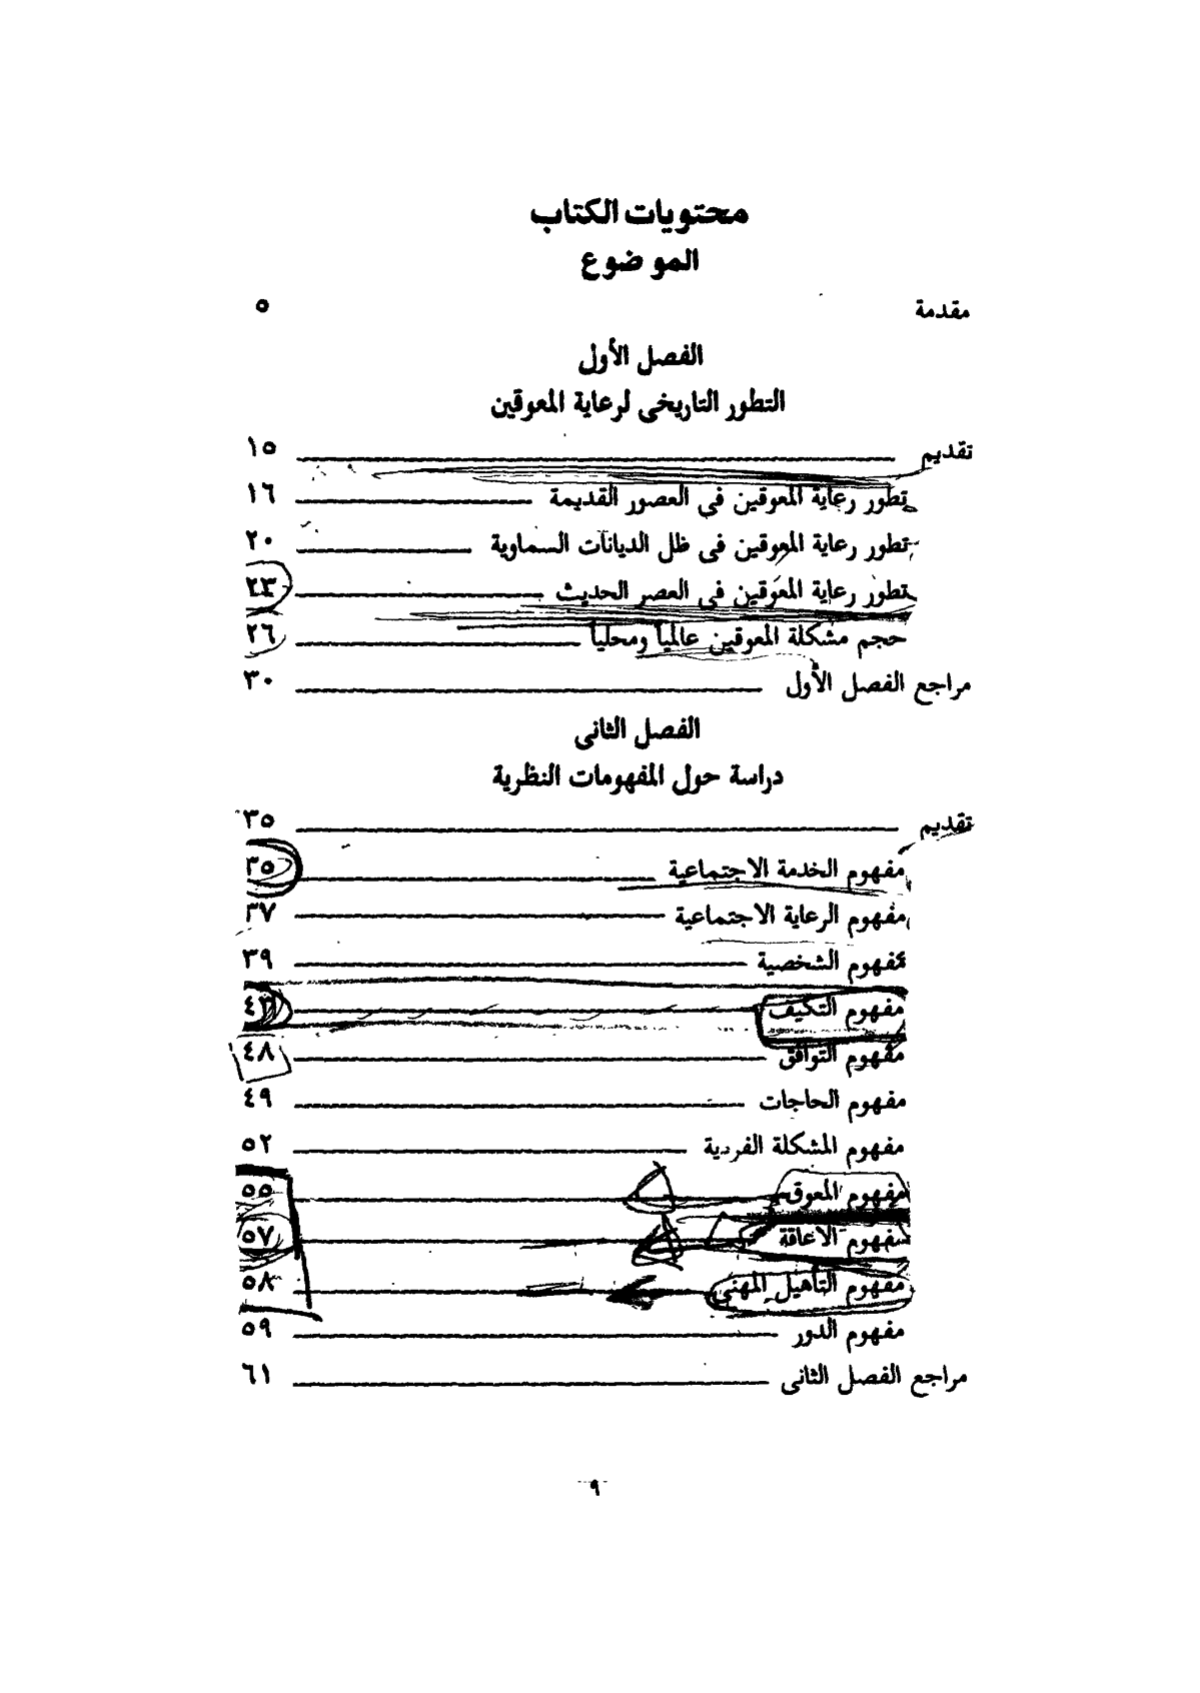 محتويات الكتاب
الموضوع
مقدمة ٥
الفصل الأول
التطور التاريخى لرعاية المعوقين
تقديم ١٥
تطور رعاية المعوقين فى العصور القديمة ١٦
تطور رعاية المعوقين فى ظل الديانات السماوية ٢٠
تطور رعاية المعوقين فى العصر الحديث ٢٣
حجم مشكلة المعوقين عالمياً ومحلياً ٢٦
مراجع الفصل الأول ٣٠
الفصل الثانى
دراسة حول المفهومات النظرية
تقديم ٣٥
مفهوم الخدمة الاجتماعية ٣٥
مفهوم الرعاية الاجتماعية ٣٧
مفهوم الشخصية ٣٩
مفهوم التكيف
مفهوم التوافق ٤٨
مفهوم الحاجات ٤٩
مفهوم المشكلة الفردية ٥٢
مفهوم المعوق ٥٥
مفهوم الاعاقة ٥٧
مفهوم التأهيل المهنى ٥٨
مفهوم الدور ٥٩
مراجع الفصل الثانى ٦١
٩